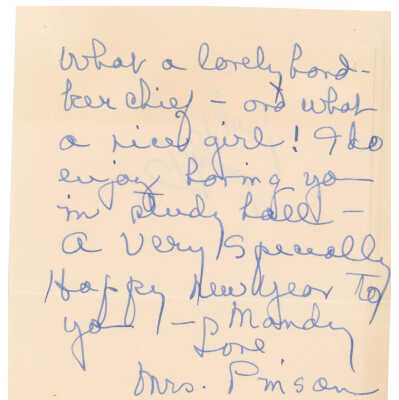 What a lovely hand-
kerchief - and what
a nice girl! I do
enjoy having you
in study hall -
A very specially
Happy New Year to
you - Mandy
Love
Mrs. Pinson